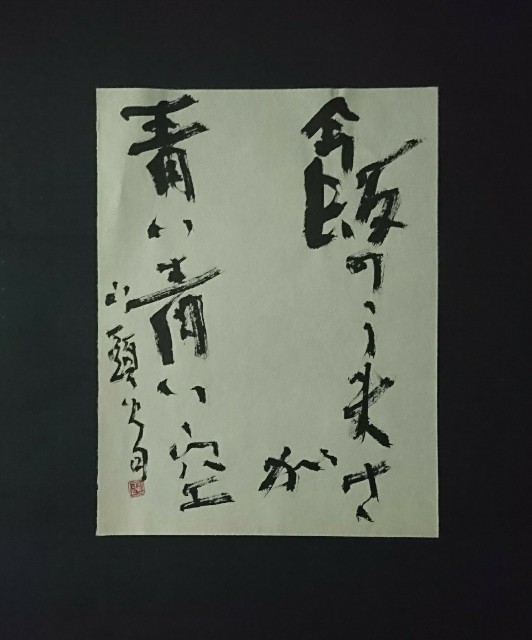 飯のうまさ
が
青い青い空
山頭火句